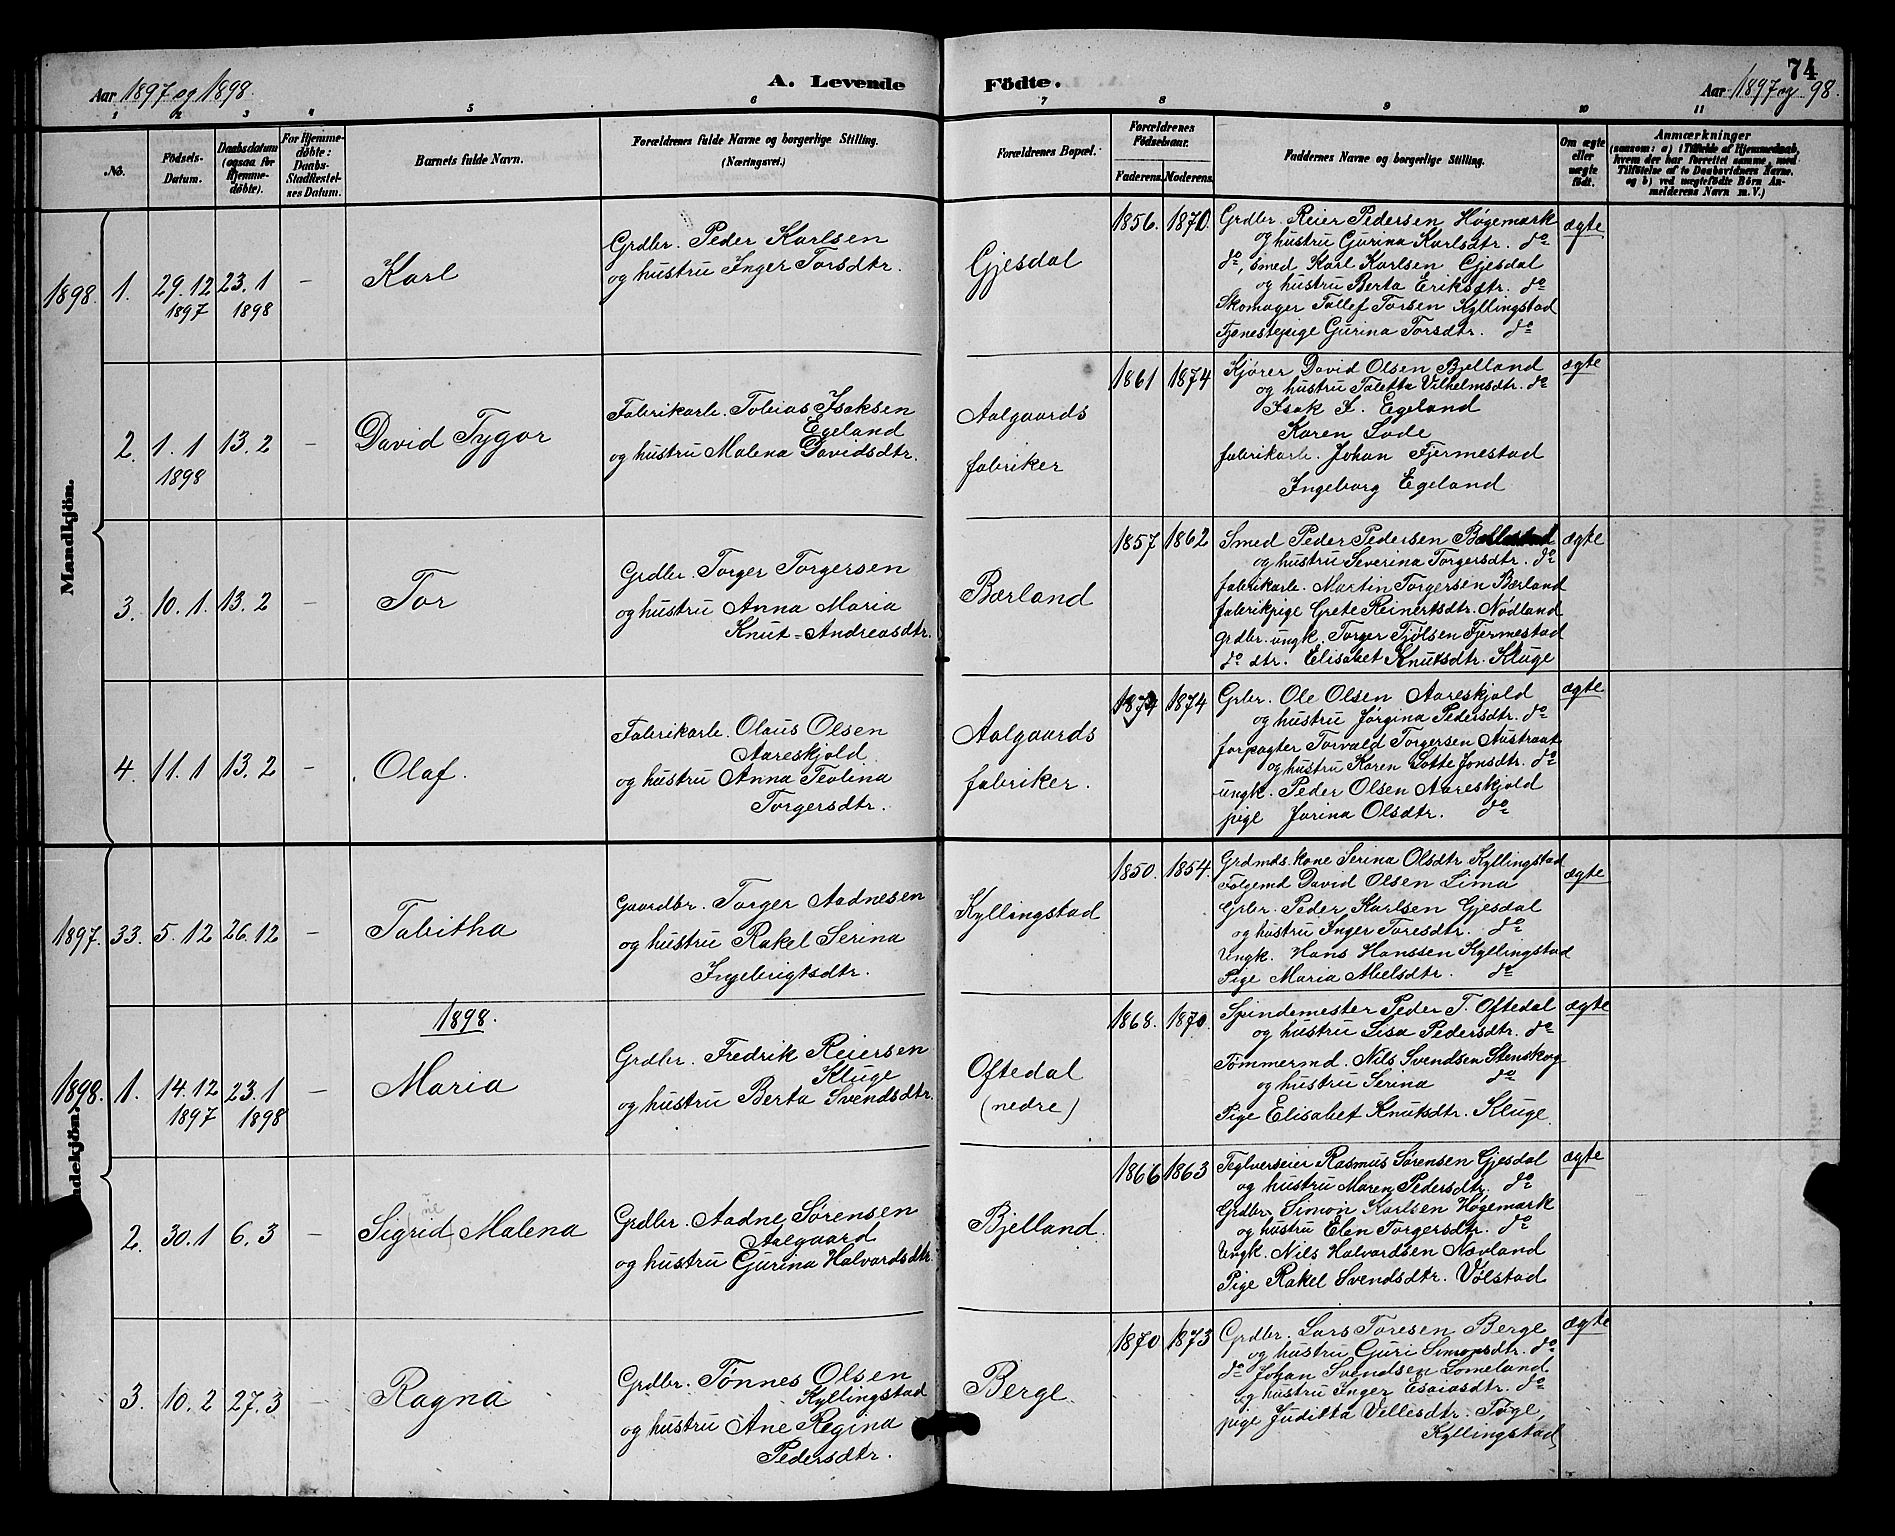 74
Aar 1897 og 1898.
A. Levende
Födte.
Aar 1897 og 98.
1 2 3 4 5 6 7 8 9 10 11
No.
Födsels-Datum.
Daabsdatum (ogsaa for Hjemme-döbte).
For Hjemme-döbte: Daabs-Stadfæstel-ses Datum.
Barnets fulde Navn.
Forældrenes fulde Navne og borgerlige Stilling. (Næringsvei.)
Forældrenes Bopæl.
Forældrenes Födselsaar.
Faderens. Moderens.
Faddernes Navne og borgerlige Stilling.
Om ægte eller uægte födt.
Anmærkninger
(saasom: a) i Tilfælde af Hjemmedaab, hvem der har forrettet samme, med Tilföielse af to Daabsvidners Navne. og b) ved uægtefödte Börn An-melderens Navn m. V.)
Mandkjön.
1898. 1. 29.12 1897 23.1 1898 – Karl
Grdbr. Peder Karlsen
og hustru Inger Torsdtr.
Gjesdal
1856. 1870.
Grdbr. Reier Pedersen Høgemark
og hustru Gurina Karlsdtr. do
do, smed Karl Karlsen Gjesdal
og hustru Berta Eriksdtr. do
Skomager Tollef Torsen Kyllingstad
Tjenestepige Gurina Torsdtr. do
ægte
2. 1.1 1898 13.2 – David Tygor
Fabrikarb. Tobias Isaksen
Egeland
og hustru Malena Davidsdtr.
Aalgaards
fabriker
1861 1874
Kjører David Olsen Bjelland
og hustru Taletta Vilhelmsdtr. do
Isak I. Egeland
Karen Lode
fabrikarb. Johan Fjermestad
Ingeborg Egeland
ægte
3. 10.1. 13.2 – Tor
Grdbr. Torger Torgersen
og hustru Anna Maria
Knut-Andreasdtr.
Bærland
1857 1862
Smed Peder Pedersen
og hustru Severina Torgersdtr. do
fabrikarb. Martin Torgersen Bærland
fabrikpige Grete Reinertsdtr. Nødland
grdbr. ungk. Torger Tjølsen Fjermestad
do dtr. Elisabet Knutsdtr. Kluge
ægte
4. 11.1 13.2 – Olaf.
Fabrikarb. Olaus Olsen
Aareskjold
og hustru Anna Teolena
Torgersdtr.
Aalgaards
fabriker.
1874 1874
Grbr. Ole Olsen Aareskjold
og hustru Jørgina Pedersdtr. do
forpagter Torvald Torgersen Austraat
og hustru Karen Lotte Jonsdtr. do
ungk. Peder Olsen Aareskjold
pige Jorina Olsdtr. do
ægte
1897. 33. 5.12 26.12 – Tabitha
Gaardbr. Torger Aadnesen
og hustru Rakel Serina
Ingebrigtsdtr.
Kyllingstad
1850. 1854.
Grdmds. kone Serina Olsdtr Kyllingstad
Følgemd David Olsen Lima
Grbr. Peder Karlsen Gjesdal
og hustru Inger Toresdtr. do
Ungk. Hans Hanssen Kyllingstad
Pige Maria Abelsdtr. do
ægte
1898.
1898. 1. 14.12 1897 23.1 1898 – Maria
Grdbr. Fredrik Reiersen
Kluge
og hustru Berta Svendsdtr.
Oftedal
(nedre)
1868. 1870.
Spindemester Peder T. Oftedal
og hustru Lisa Pedersdtr. do
Tømmermd. Nils Svendsen Stenskog
og hustru Serina do
Pige Elisabet Knutsdtr. Kluge.
ægte
ndekjön.
2. 30.1 6.3 – Sigrid (ne) Malena
Grdbr. Aadne Sørensen
Aalgaard
og hustru Gurina Halvordsdtr.
Bjelland.
1866 1863
Teglverseier Rasmus Sørensen Gjesdal
og hustru Maren Pedersdtr. do
Grdbr. Simon Karlsen Høgemark
og hustru Elen Torgersdtr. do
Ungk. Nils Halvardsen Nævland
Pige Rakel Svendsdtr. Vølstad
ægte
3. 10.2 27.3 – Ragna
Grdbr. Tønnes Olsen
Kyllingstad
og hustru Ane Regina
Pedersdtr.
Berge.
1870 1873
Grdbr. Lars Toresen Berge
og hustru Guri Simonsdtr. do
do Johan Svendsen Lomeland
og hustru Inger Esaiasdtr. do
pige Juditta Vellesdtr. Tøge,
Kyllingstad
ægte